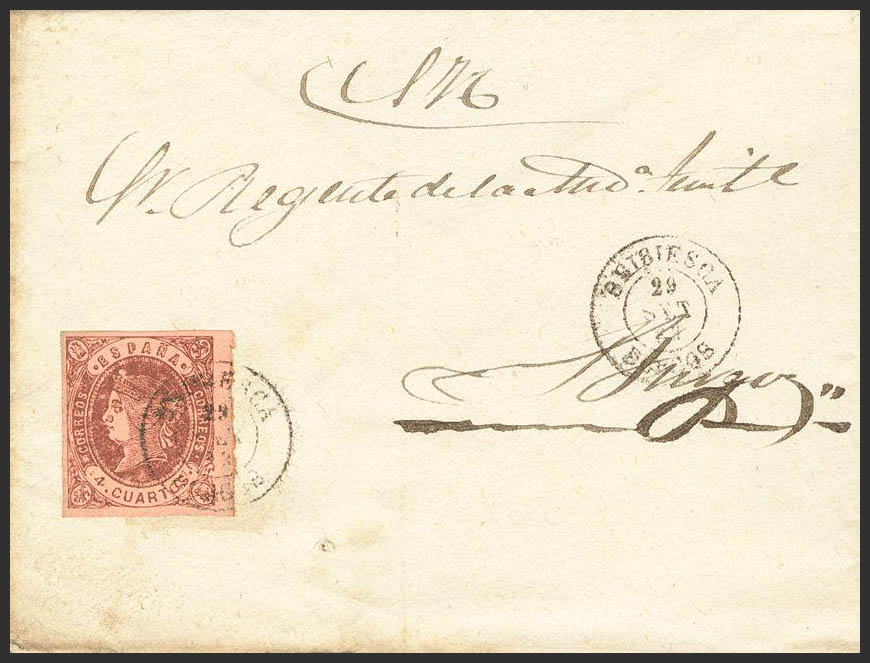 S N
Sr. Regente de la Aud.ª Territ.l
BRIBIESCA
29
BURGOS
Burgos
ESPAÑA
CORREOS
CORREOS
4 CUARTOS
29